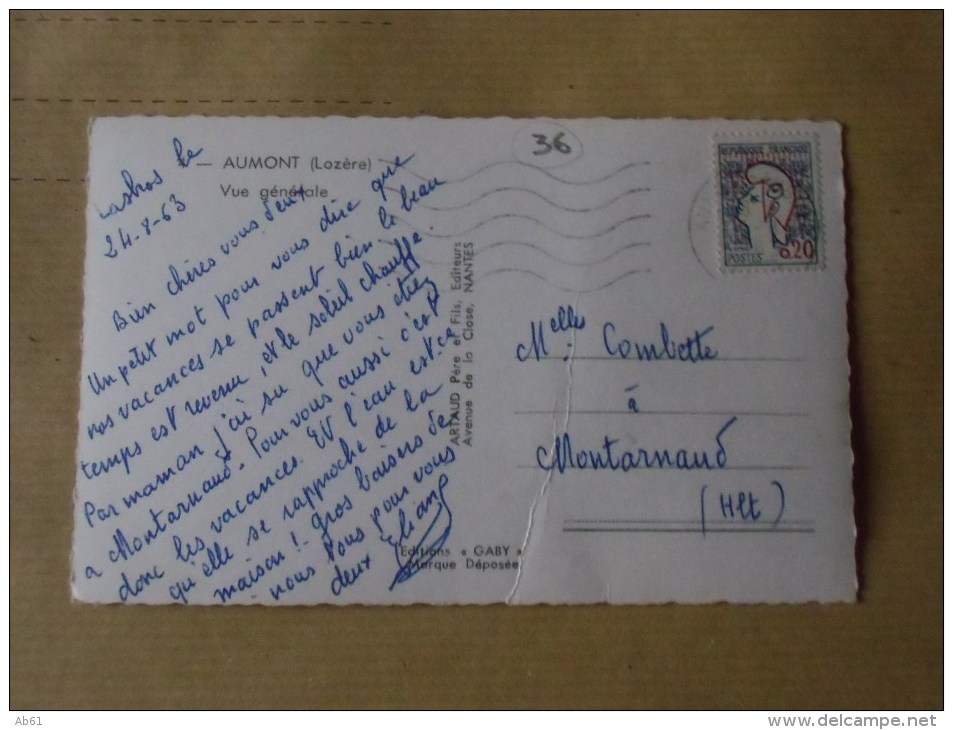 Lasbros le
24-8-63
— AUMONT (Lozère)
Vue générale
Bien chères vous deux
Un petit mot pour vous dire que
nos vacances se passent bien le beau
temps est revenu, et le soleil chauffe.
Par maman j'ai su que vous étiez
a Montarnaud. Pour vous aussi c'est
donc les vacances. Et l'eau est-ce
qu'elle se rapproche de la
maison! gros baisers de
nous tous pour vous
deux
Eliane
ARTAUD Père et Fils, Editeurs
Avenue de la Close, NANTES
Editions « GABY »
Marque Déposée
36
REPUBLIQUE FRANÇAISE
POSTES
0,20
Melles Combette
à
Montarnaud
(Hlt)
Ab61
www.delcampe.net